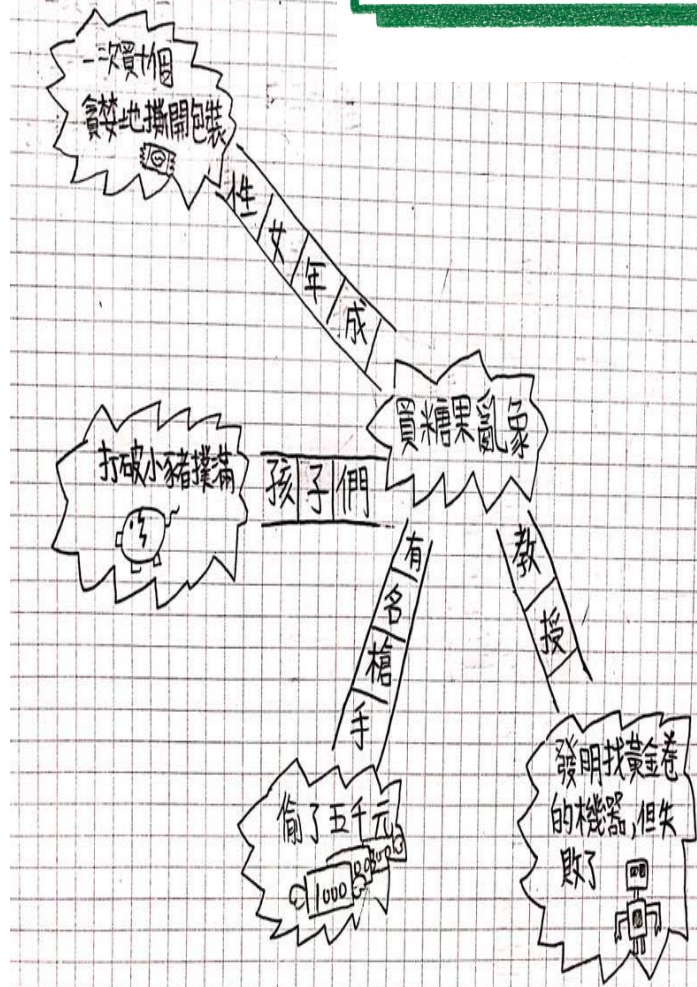 一次買十個
貪婪地撕開包裝
成年女性
買糖果亂象
打破小豬撲滿
孩子們
有名槍手
教授
偷了五千元
1000
發明找黃金卷
的機器,但失
敗了